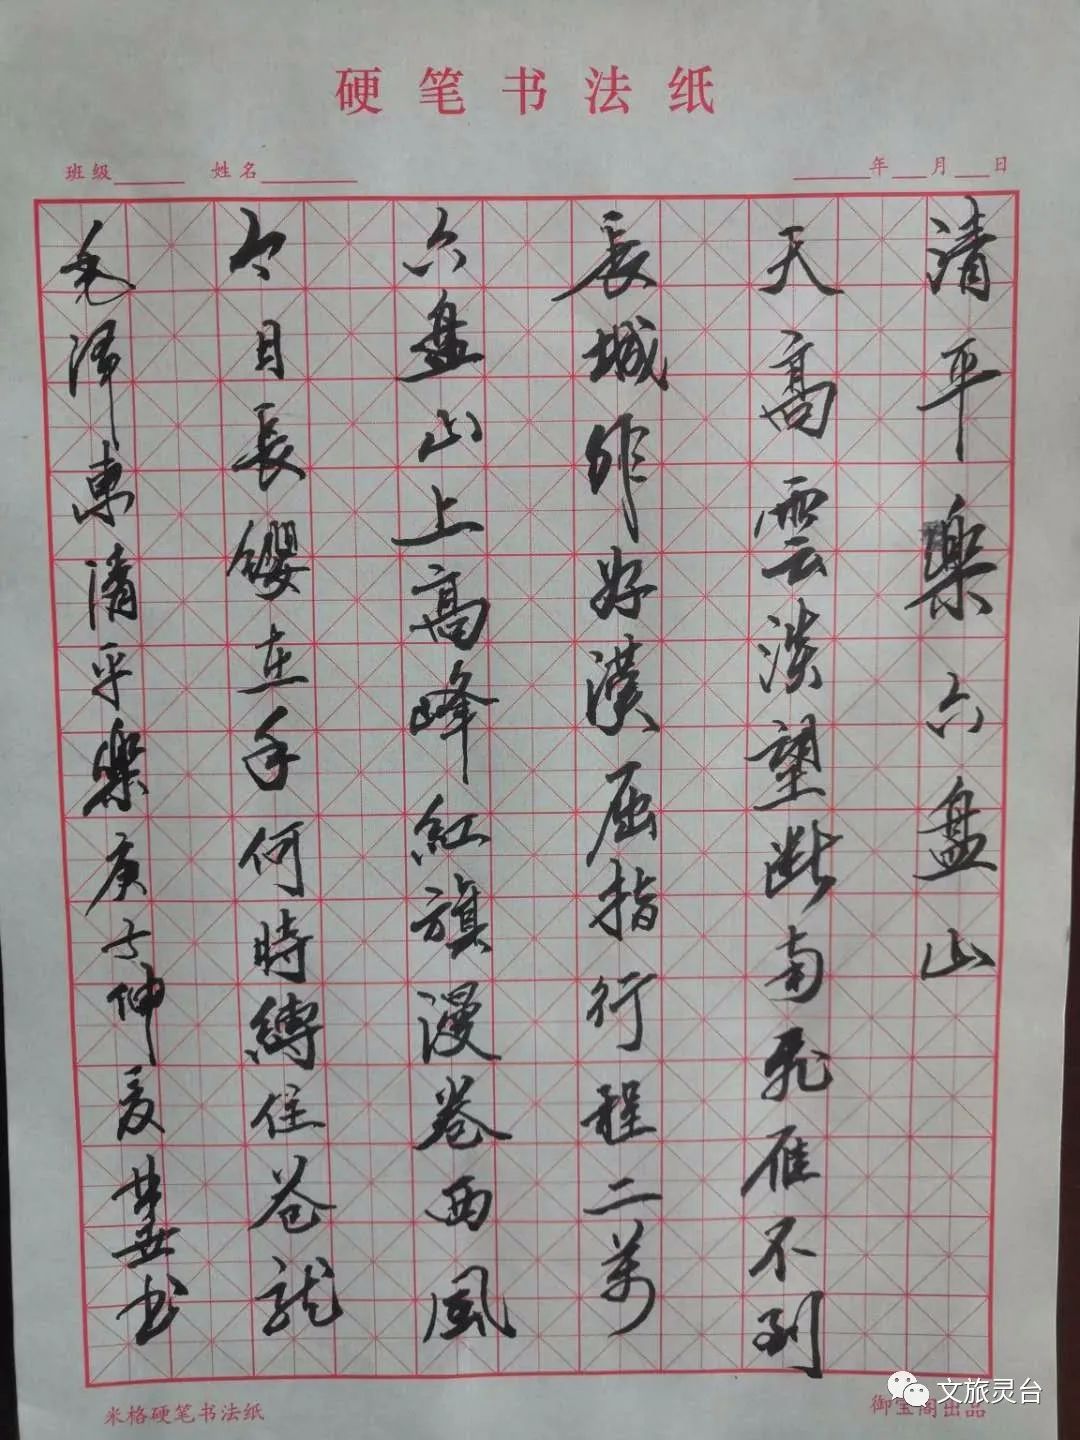 硬笔书法纸
班级 姓名 年 月 日
清平樂六盘山
天高雲淡望断南飛雁不到
長城非好漢屈指行程二萬
六盘山上高峰紅旗漫卷西風
今日長纓在手何時縛住苍龙
毛泽東清平樂庚子仲夏 书
米格硬笔书法纸
御宝阁出品
文旅灵台